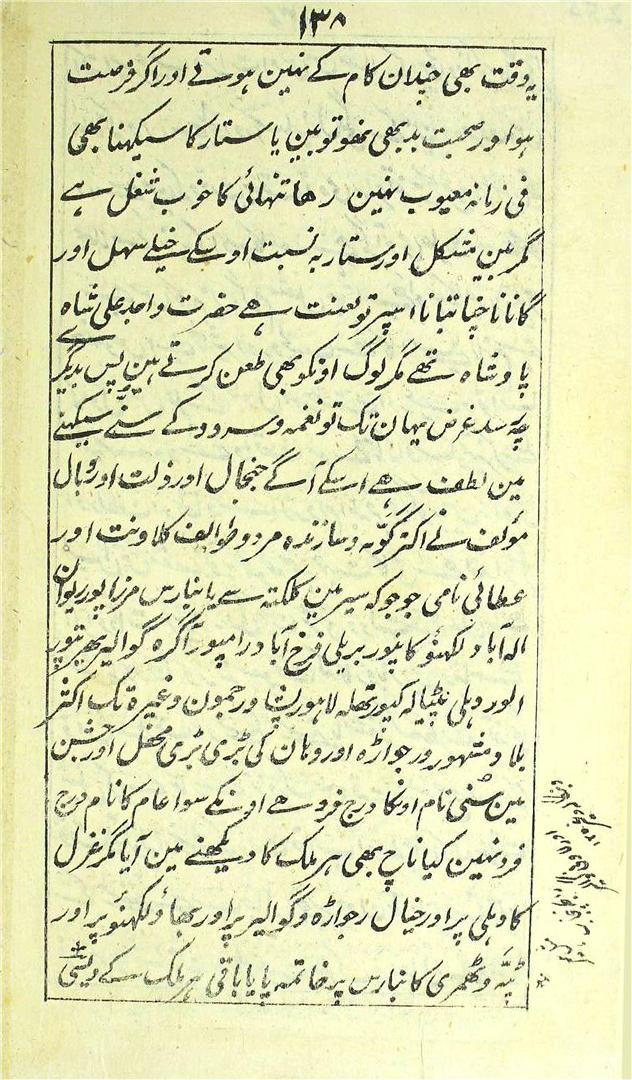 ۱۳۸
یہ وقت بھی چندان کام کے نہین ہوتے اور اگر فرصت
ہوا ور صحبت بدبھی نھو تو بین یا ستار کا سیکہنا بھی
فی زمانہ معیوب نہین رھا تنہائی کا خوب شغل ہے
مگر بین مشکل اور ستار بہ نسبت اوسکے خیلے سہل اور
گانا ناچنا بتانا اسپر تو لعنت ھے حضرت واجد علی شاہ
پادشاہ تھے مگر لوگ اونکو بھی طعن کرتے ہین پس بدیگر
چہ رسد غرض یہان تک تو نغمہ و سرود کے سننے سیکہنے
مین لطف ھے اسکے آگے جنجال اور ذلت اور وبال
مؤلف نے اکثر گوّیہ و سازندہ مرد و طوایف کلاونت اور
عطائی نامی جو جو کہ سیر مین کلکتہ سے یا بنارس مرزاپور ریوان
الہ آباد لکہنؤ کانپور بریلی فرخ آباد رامپور آگرہ گوالیر بھرتپور
الور دہلی پٹیالہ کپورتھلہ لاہور پشاور جمون وغیرہ تک اکثر
بلاد مشہور رجواڑہ اور وہان کی بڑی بڑی محفل اور جشن
مین سُنی نام اونکا درج فرد ھے اونکے سوا عام کا نام درج
فرد نہین کیا ناچ بھی ہر ملک کا دیکہنے مین آیا مگر غزل
کا دہلی پر اور خیال رجواڑہ و گوالیر پر اور بھاؤ لکہنؤ پر اور
ٹپّہ و ٹھمری کا بنارس پر خاتمہ پایا باقی ہر ملک کے دیسی